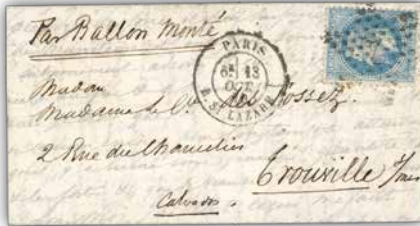 Par Ballon Monté
PARIS
6E 13
OCT.
R. ST LAZARE
Madame
Madame la Ctsse des Fossez.
2 Rue du Chancelier
Trouville s/mer
Calvados.